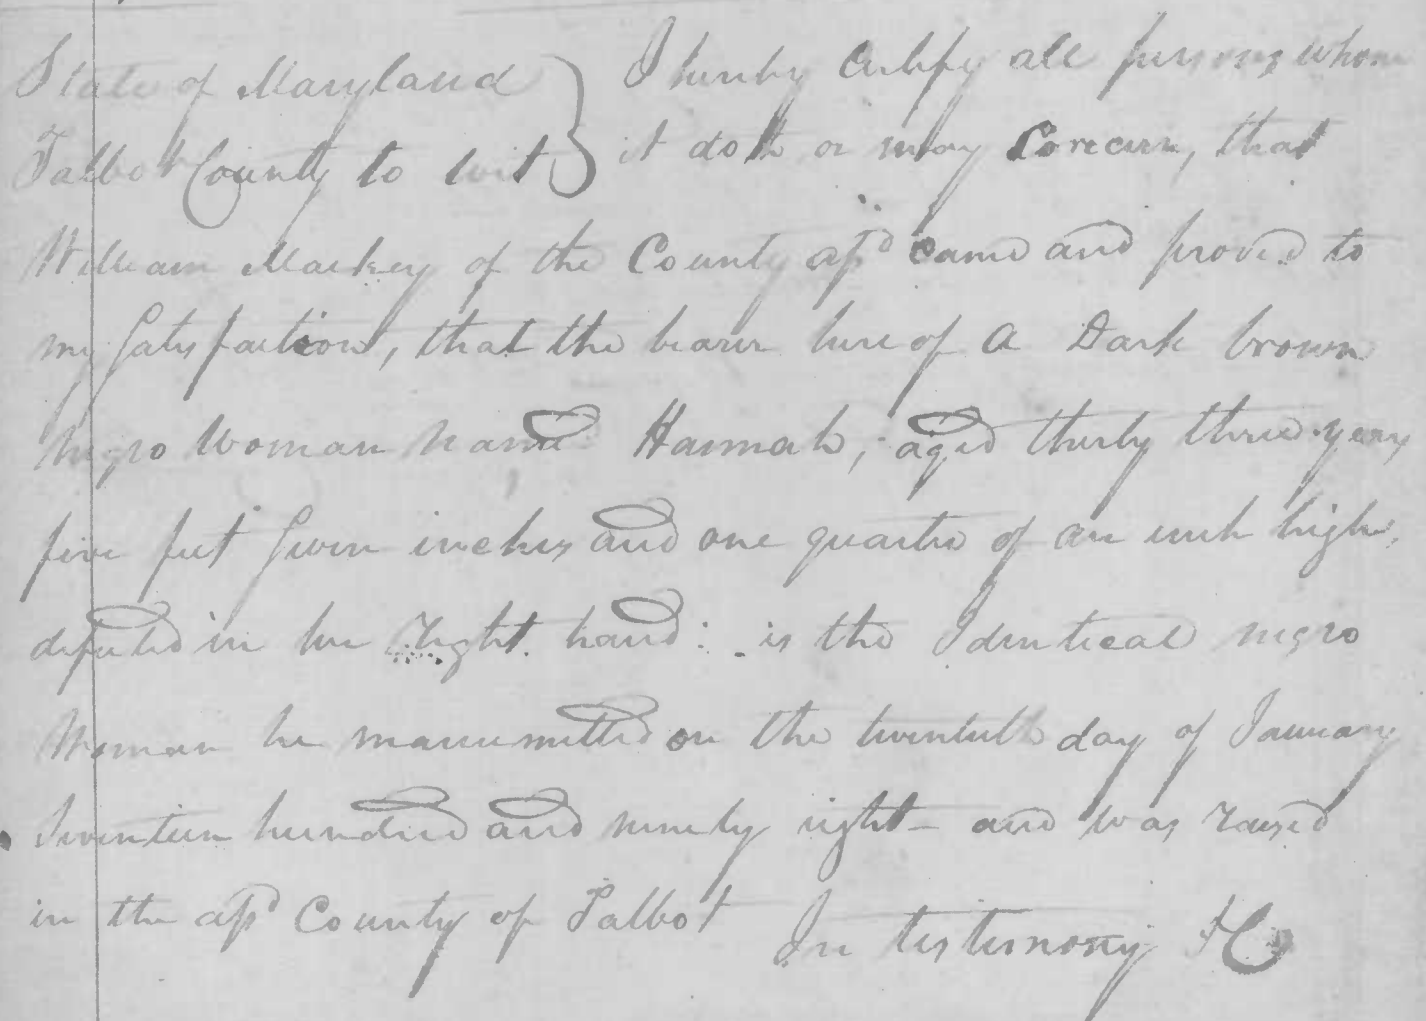 State of Maryland } I hereby Certify all persons whom
Talbot County to wit } it doth or may Concern, that
William Mackey of the County afsd came and proved to
my Satisfaction, that the bearer hereof a Dark brown
negro Woman name Hannah, aged thirty three years
five feet Seven inches and one quarter of an inch high,
defected in her Right hand: is the Identical negro
Woman he manumitted on the twentieth day of January
Seventeen hundred and ninety eight - and was raised
in the afsd County of Talbot In testimony &c